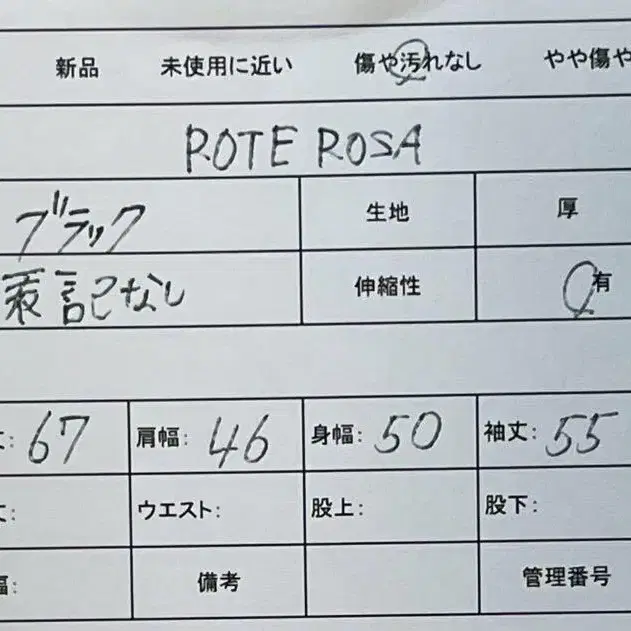 新品 未使用に近い 傷や汚れなし やや傷や
ROTE ROSA
ブラック 生地 厚
表記なし 伸縮性 有
丈: 67 肩幅: 46 身幅: 50 袖丈: 55
丈: ウエスト: 股上: 股下:
幅: 備考 管理番号